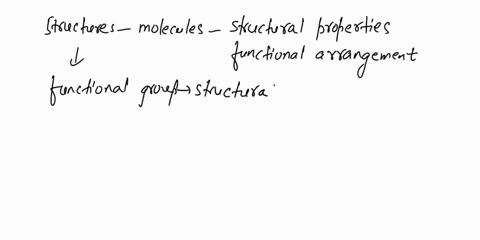 structures - molecules - structural properties
↓ functional arrangement
functional group → structura